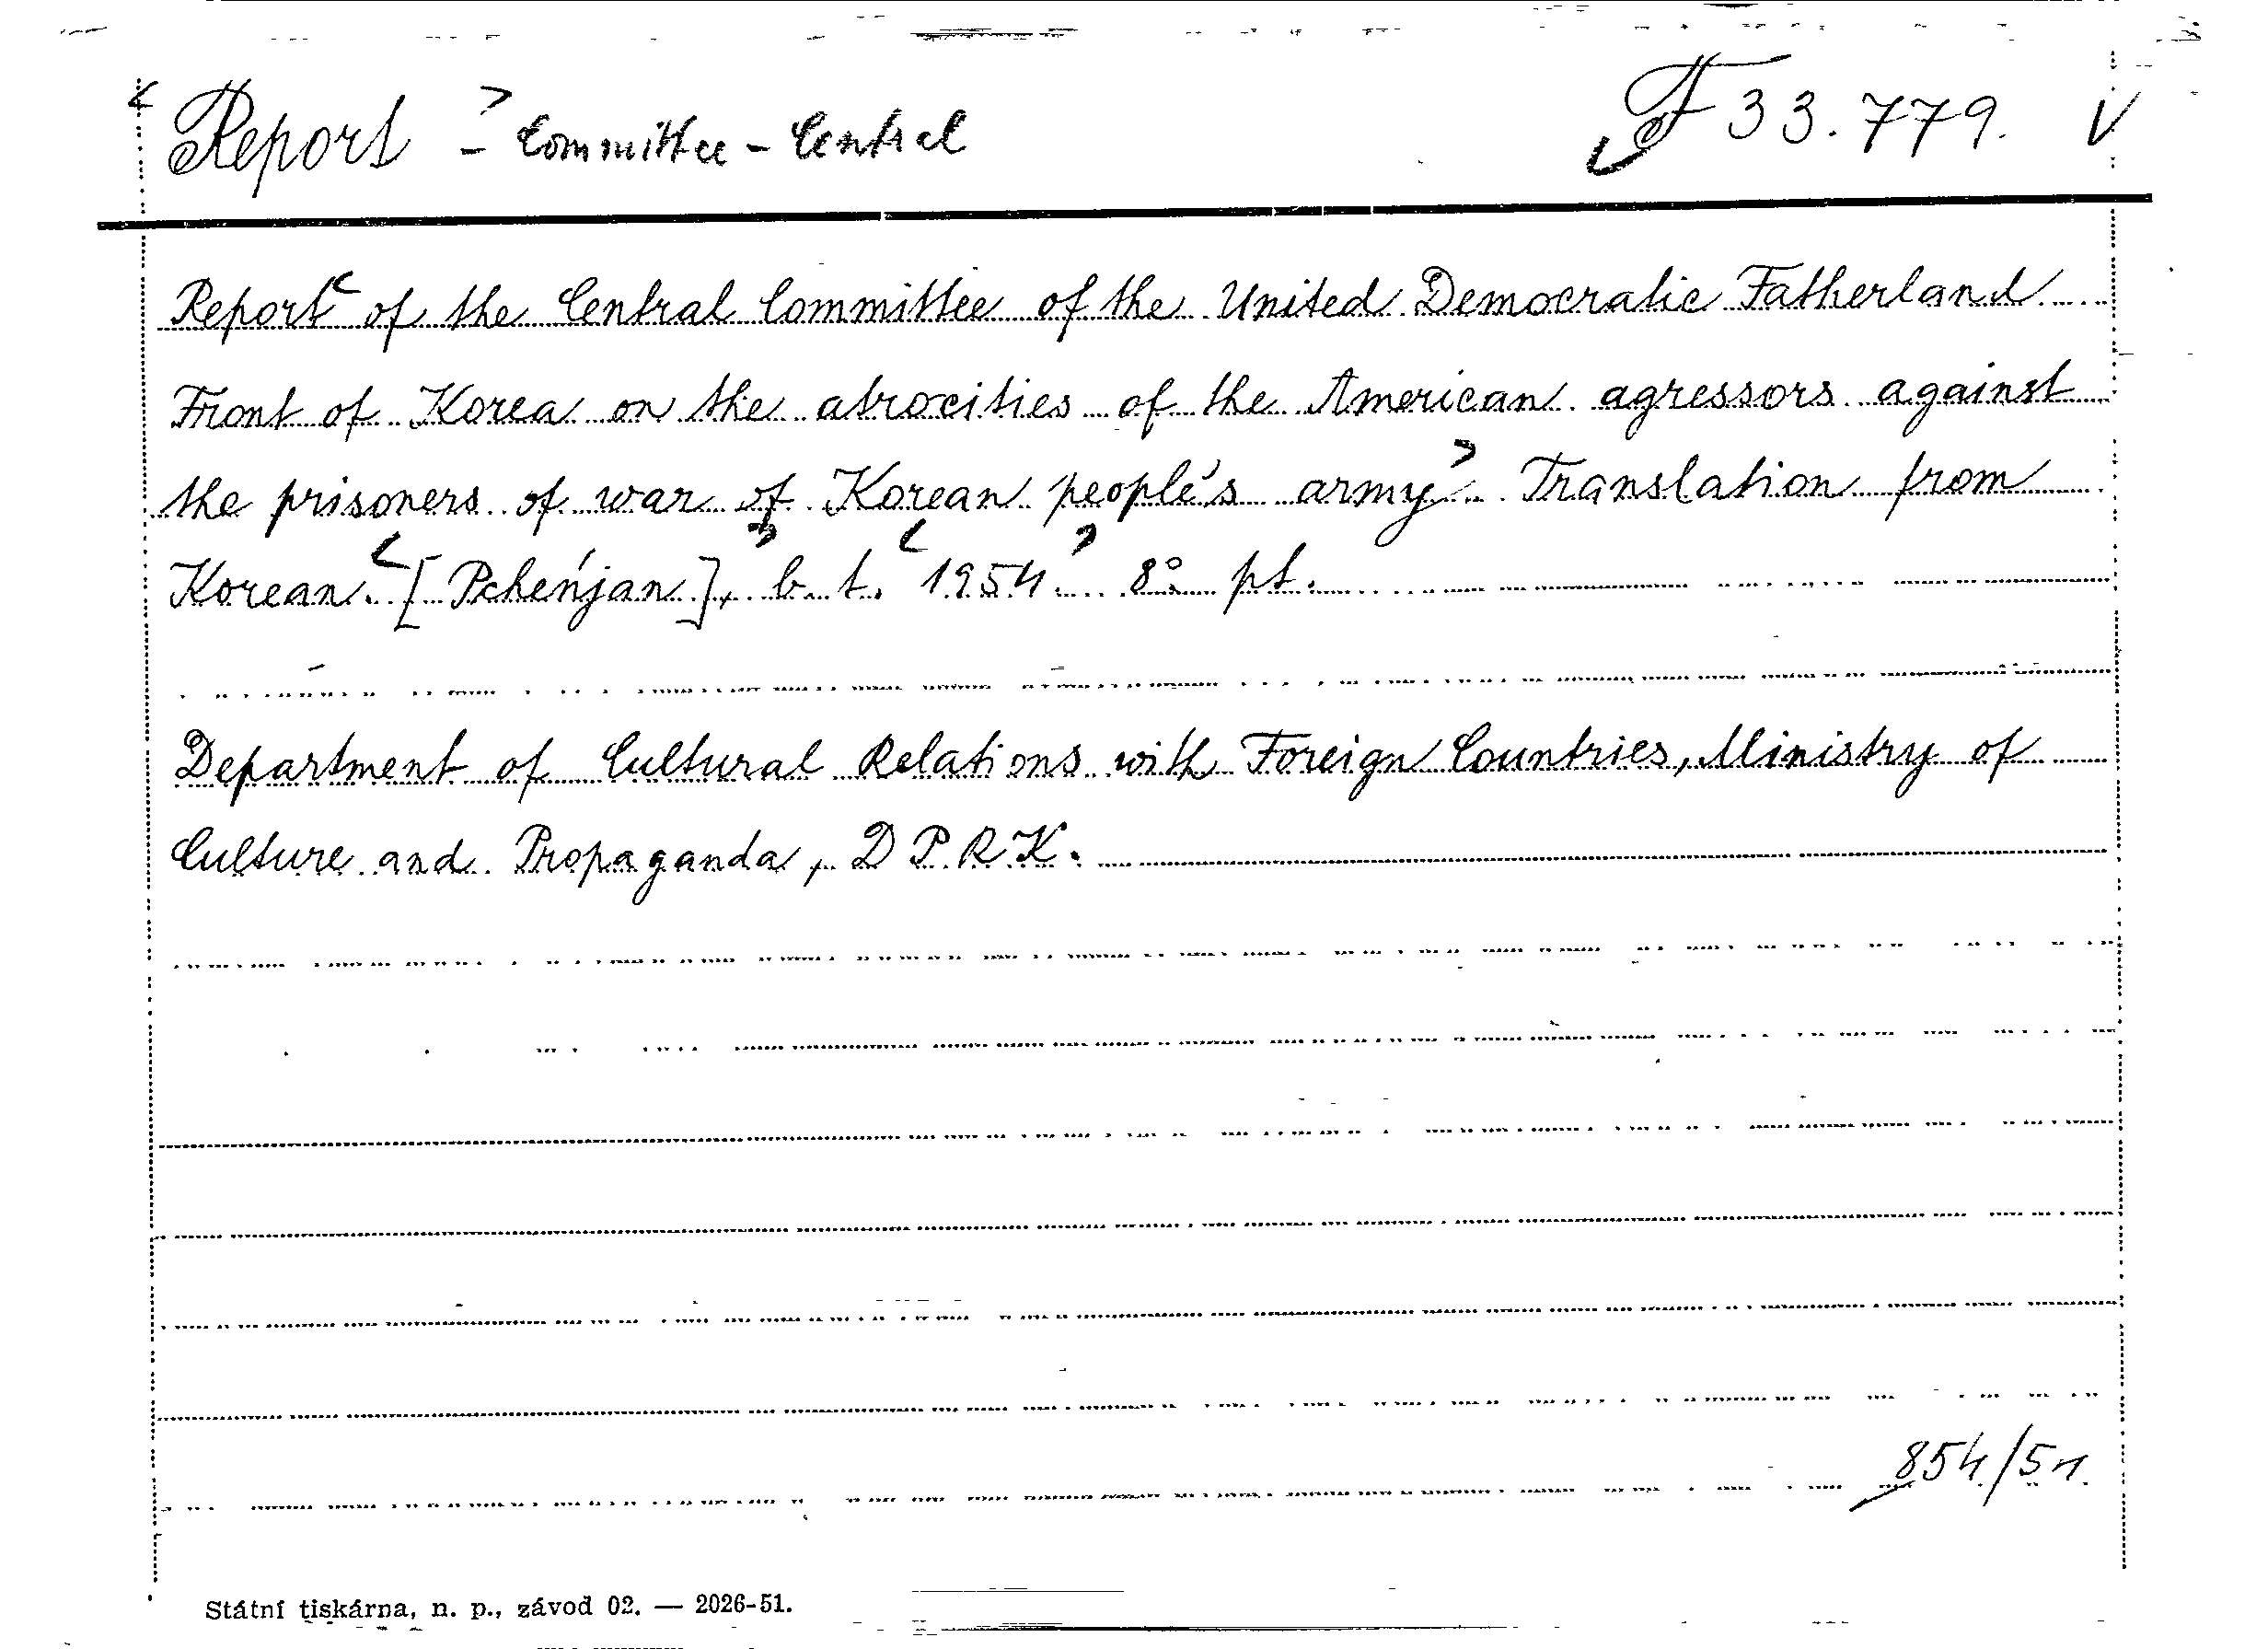 Report - Committee - Central F 33.779. V
Report of the Central Committee of the United Democratic Fatherland
Front of Korea on the atrocities of the American agressors against
the prisoners of war of Korean people's army. Translation from
Korean. [Pcheńjan], b. t. 1954. 8° pt.
Department of Cultural Relations with Foreign Countries, Ministry of
Culture and Propaganda, D P. R. K.
854/54.
Státní tiskárna, n. p., závod 02. — 2026-51.